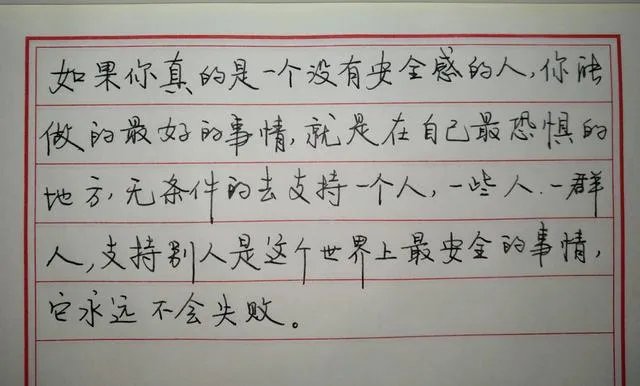 如果你真的是一个没有安全感的人,你能
做的最好的事情,就是在自己最恐惧的
地方,无条件的去支持一个人,一些人.一群
人,支持别人是这个世界上最安全的事情,
它永远不会失败。